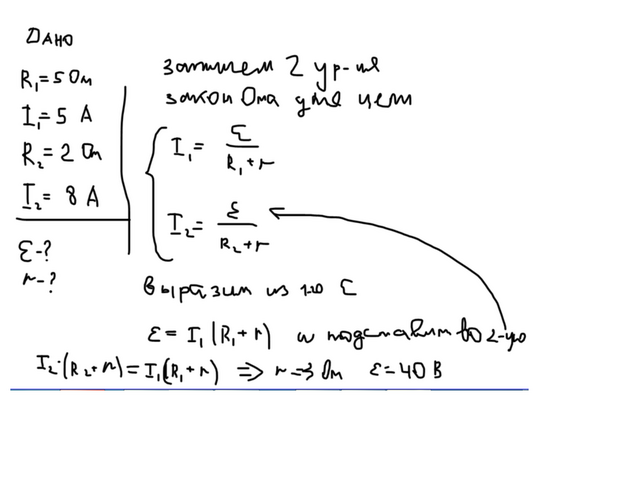 Дано
R₁=5 Ом
I₁=5 А
R₂=2 Ом
I₂= 8 А
ε-?
r-?
запишем 2 ур-ие
закон Ома для цепи
I₁= ε / R₁+r
I₂= ε / R₂+r
выразим из 1-го ε
ε= I₁(R₁+r) и подставим во 2-ую
I₂·(R₂+r)=I₁(R₁+r) => r=3 Ом ε=40 В